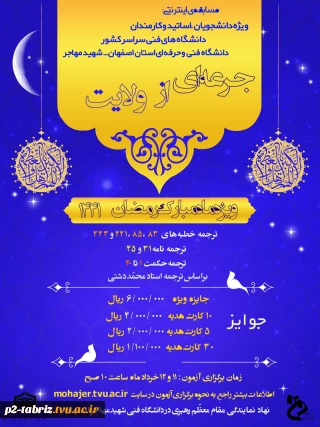 مسابقه‌ی اینترنتی:
ویژه دانشجویان، اساتید و کارمندان
دانشگاه‌های فنی سراسر کشور
دانشگاه فنی و حرفه‌ای استان اصفهان - شهید مهاجر
جرعه‌ای از ولایت
ویژه ماه مبارک رمضان ۱۴۴۱
ترجمه خطبه‌های ۸۳، ۸۵، ۲۲۱ و ۲۲۳
ترجمه نامه ۳۱ و ۴۵
ترجمه حکمت ۱ تا ۲۰
براساس ترجمه استاد محمد دشتی
جوایز
جایزه ویژه ۶/۰۰۰/۰۰۰ ریال
۱۰ کارت هدیه ۴/۰۰۰/۰۰۰ ریال
۵ کارت هدیه ۲/۰۰۰/۰۰۰ ریال
۳۰ کارت هدیه ۱/۱۰۰/۰۰۰ ریال
زمان برگزاری آزمون: ۱۱ و ۱۲ خرداد ماه ساعت ۱۰ صبح
اطلاعات بیشتر راجع به نحوه برگزاری آزمون در سایت mohajer.tvu.ac.ir
نهاد نمایندگی مقام معظم رهبری در دانشگاه فنی شهید
p2-tabriz.tvu.ac.ir